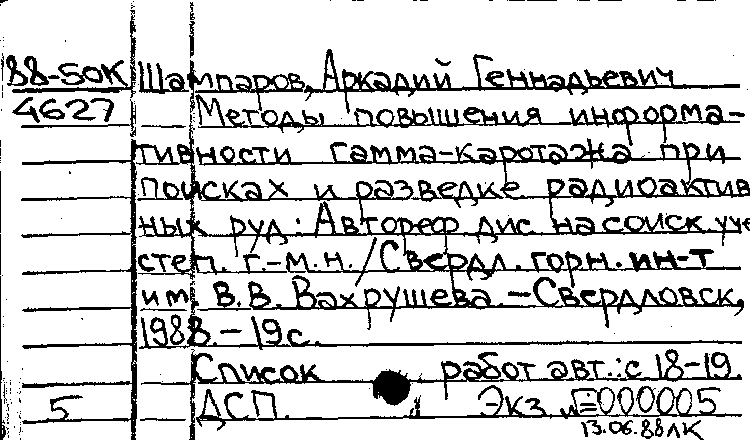 88-50К Шампаров, Аркадий Геннадьевич
4627 Методы повышения информа-
тивности гамма-каротажа при
поисках и разведке радиоактив
ных руд: Автореф дис на соиск уче
степ. г.-м.н./Свердл. горн. ин-т
им. В.В. Вахрушева.-Свердловск,
1988.-19с.
Список работ авт.: с 18-19.
5 ДСП. Экз. №000005
13.06.88ЛК